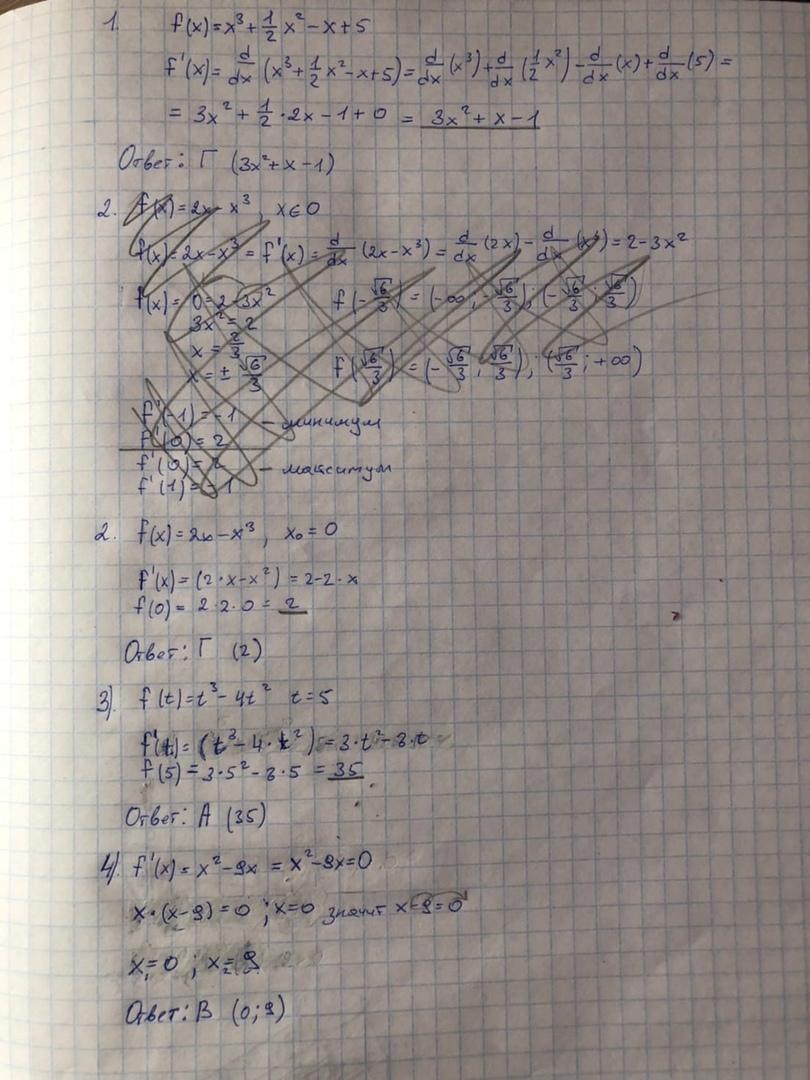 1. f(x)=x³+1/2x²-x+5
f'(x)=d/dx(x³+1/2x²-x+5)=d/dx(x³)+d/dx(1/2x²)-d/dx(x)+d/dx(5)=
= 3x²+1/2·2x-1+0 = 3x²+x-1
Ответ: Г (3x²+x-1)
2. f(x)=2x-x³, x∈0
f(x)=2x-x³=f'(x)=d/dx(2x-x³)=d/dx(2x)-d/dx(x³)=2-3x²
f(x)=0=2-3x² f(-√6/3)=(-∞,-√6/3);(-√6/3;√6/3)
3x²=2
x=2/3
x=±√6/3 f(√6/3)=(-√6/3;√6/3);(√6/3;+∞)
f'(-1)=-1 - минимум
f'(0)=2
f'(0)=2 - максимум
f'(1)=-1
2. f(x)=2x-x³, x₀=0
f'(x)=(2·x-x²)=2-2·x
f(0)=2·2·0=2
Ответ: Г (2)
3) f(t)=t³-4t² t=5
f'(t)=(t³-4·t²)=3·t²-8·t
f(5)=3·5²-8·5=35
Ответ: А (35)
4) f'(x)=x²-9x=x²-9x=0
x·(x-9)=0 ; x=0 значит x-9=0
x₁=0 ; x₂=9
Ответ: В (0;9)